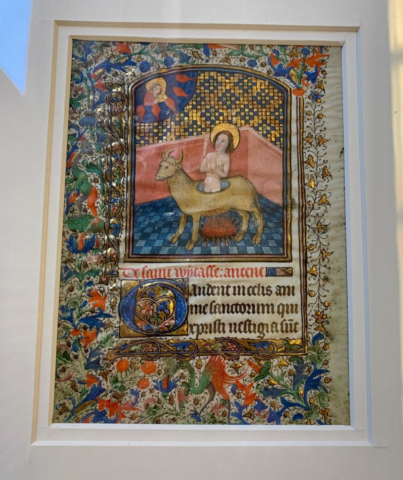 De saint wistasse: antene
Gaudent in celis ani
me sanctorum qui
xpristi uestigia sūt